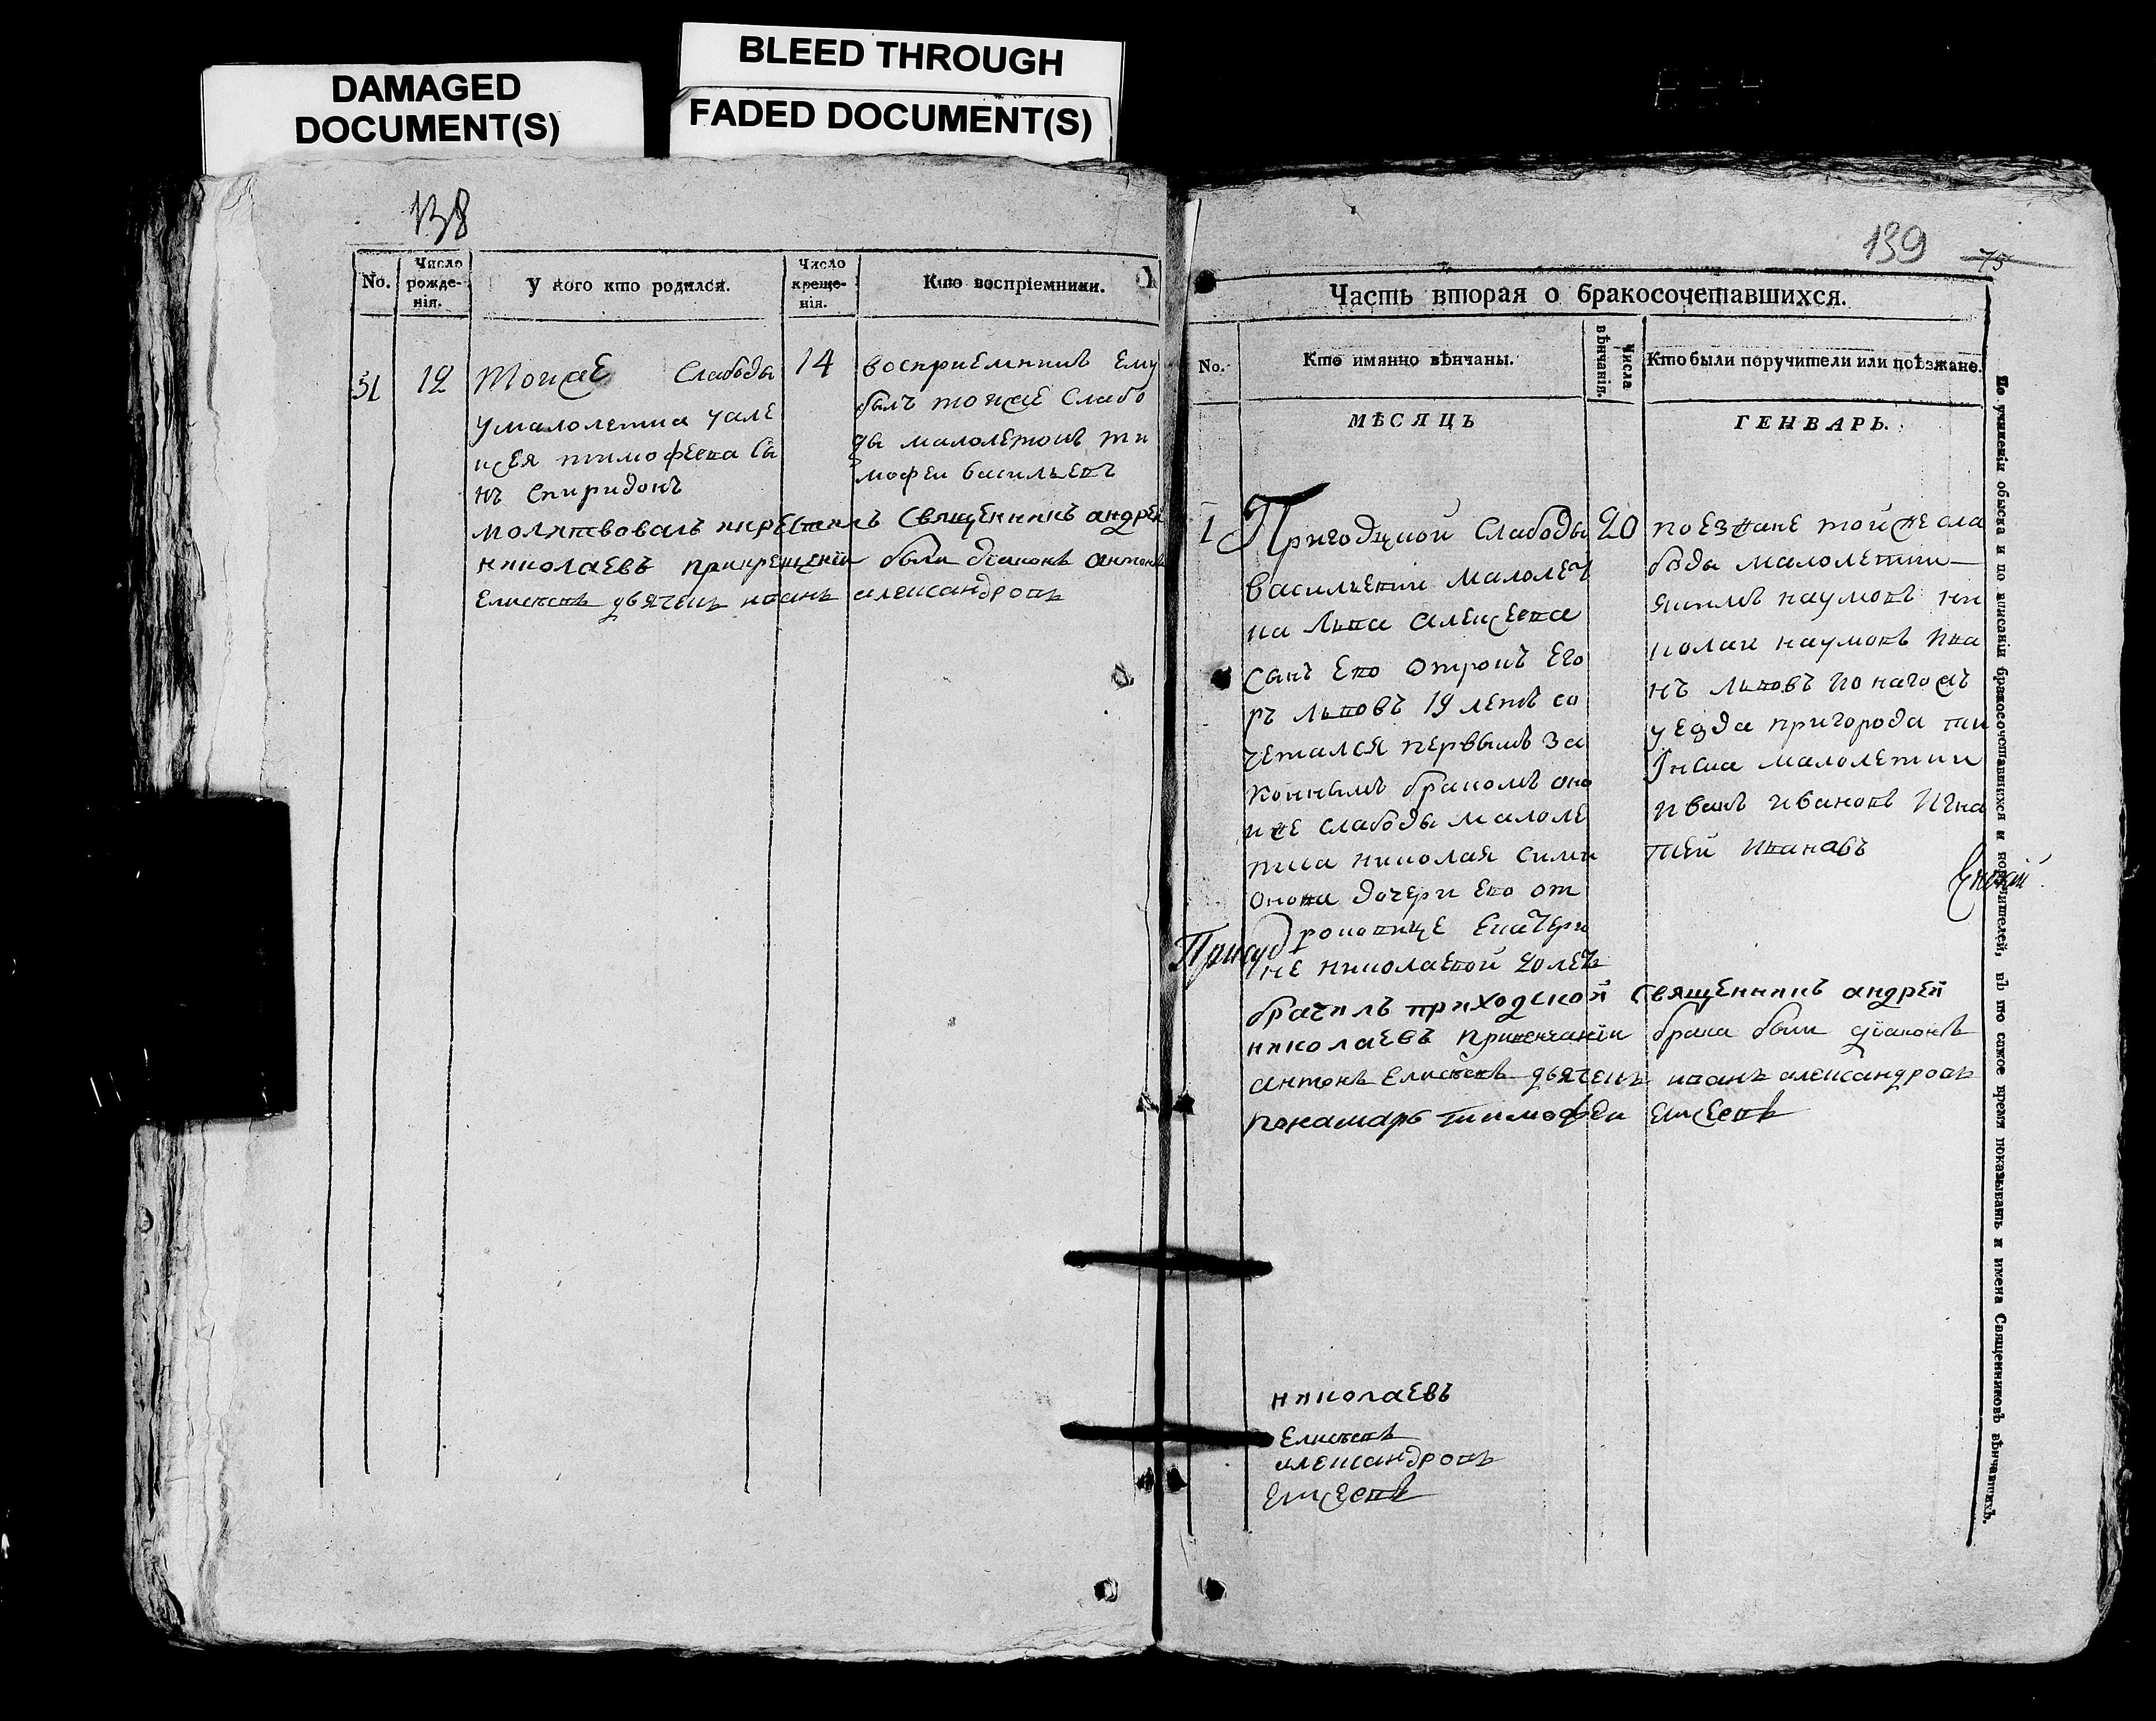 DAMAGED
DOCUMENT(S)
BLEED THROUGH
FADED DOCUMENT(S)
138
No.
Число
рожде-
нія.
У кого кто родился.
Число
креще-
нія.
Кто воспріемники.
51
12
тойже Слабоды
умалолетка
тимофеева Сы
нъ Спиридонъ
14
восприемникъ ему
былъ тойже Слабо
ды малолетокъ ти
мофеи васильевъ
молитвовалъ икрестилъ Священникъ андреи
николаевъ прикрещенїи были дїаконъ антонъ
Елисеевъ дьячекъ иванъ александровъ
139
75
Часть вторая о бракосочетавшихся.
No.
Кто имянно вѣнчаны.
Числа
вѣнчанія.
Кто были поручители или поѣзжане.
МѢСЯЦЪ
ГЕНВАРЬ.
1
Пригодцкой Слабоды
василлевки малолет
ка льва алексеева
Сынъ Ево отрокъ Его
ръ львовъ 19 летъ со
четался первымъ за
коннымъ бракомъ оно
иже слабоды малоле
тка николая сими
онова дочери Ево от
роковице Екатери
не николаевой 20 летъ
20
поезжане тойже сла
боды малолетки
якимъ наумовъ ни
колаи наумовъ ива
нъ львовъ
уезда пригорода ти
инска малолетки
иванъ ивановъ игна
теи ивановъ
брачилъ приходской Священникъ андреи
николаевъ привенчанїи брака были дїаконъ
антонъ Елисеевъ дьячекъ иванъ александровъ
понамарь тимофеи Елисеевъ
николаевъ
Елисеевъ
александровъ
Елисеевъ
По учиненіи обыска и по вписаніи бракосочетавшихся и поручителей, въ то самое время показывать и имена Священниковъ вѣнчавшихъ.